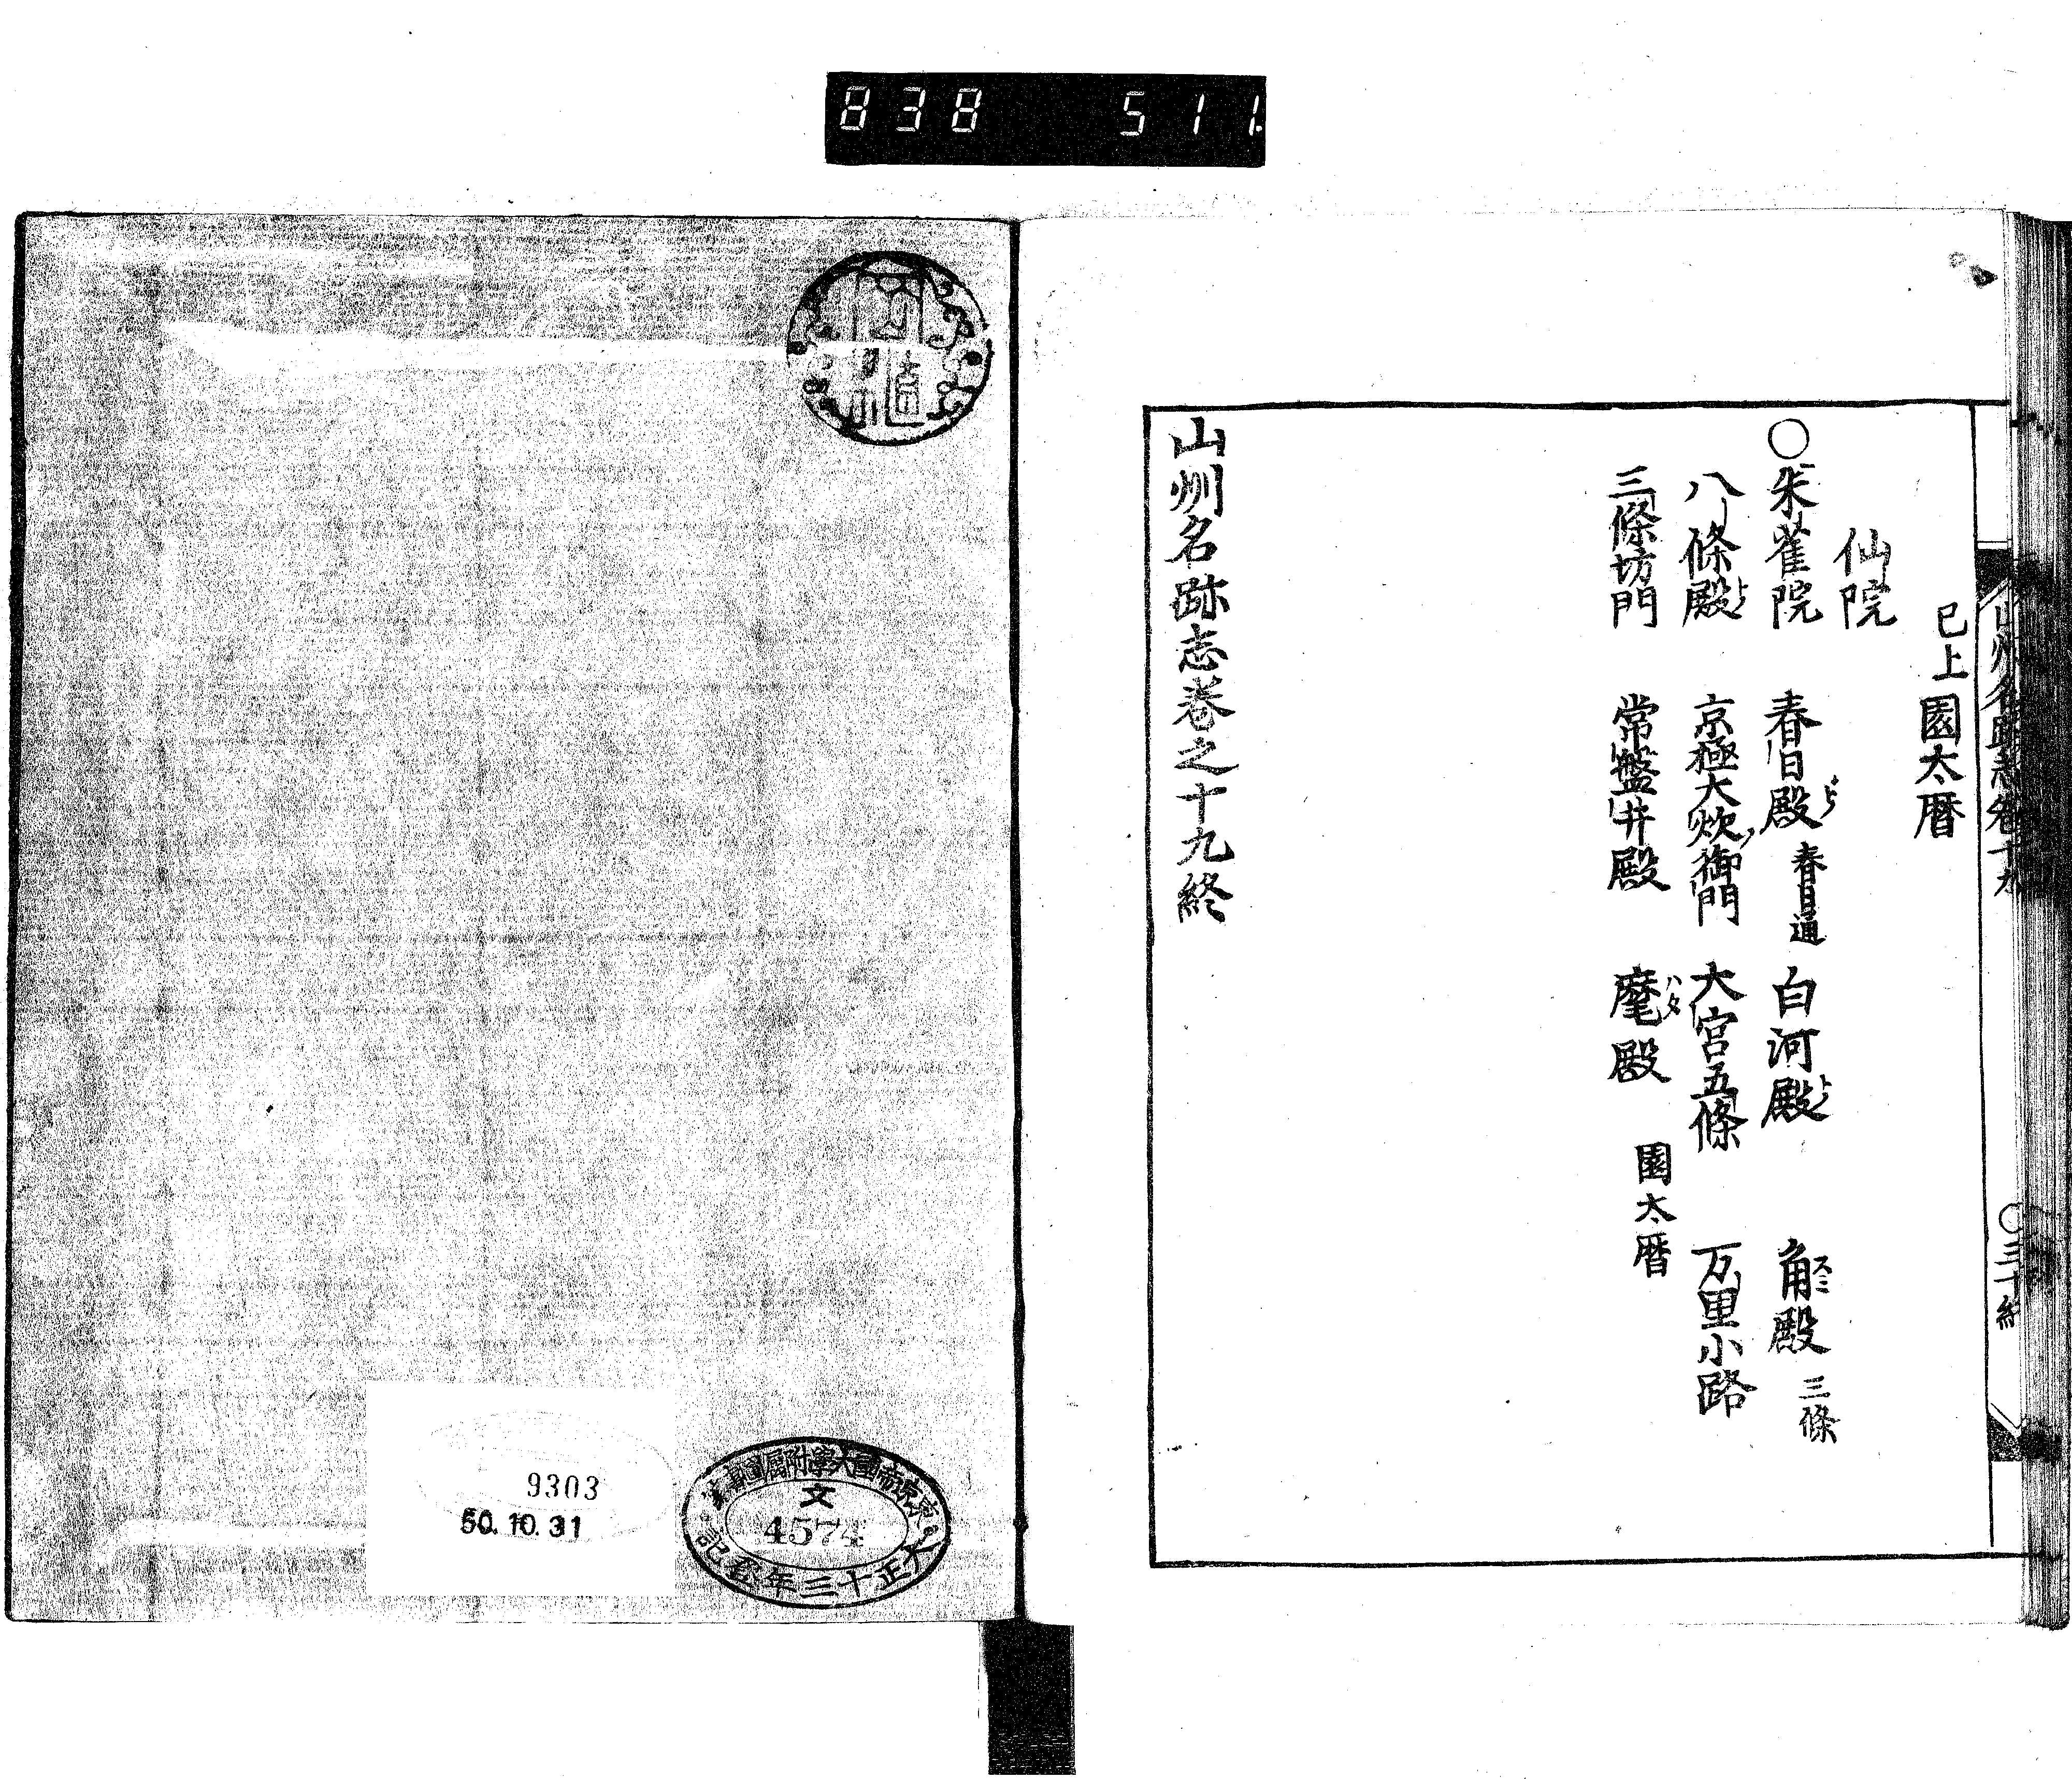 838 511
山州名跡志卷十九 〇三十終
已上園太暦
仙院
〇朱雀院 春日殿 春日通 白河殿 角殿 三條
八條殿 京極大炊御門 大宮五條 万里小路
三條坊門 常盤井殿 麾殿 園太暦
山州名跡志卷之十九終
東京帝國大學附屬圖書
文
4574
大正十三年登記
9303
50.10.31